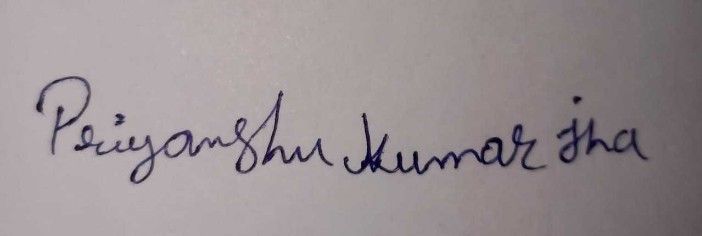 Priyanshu Kumar Jha